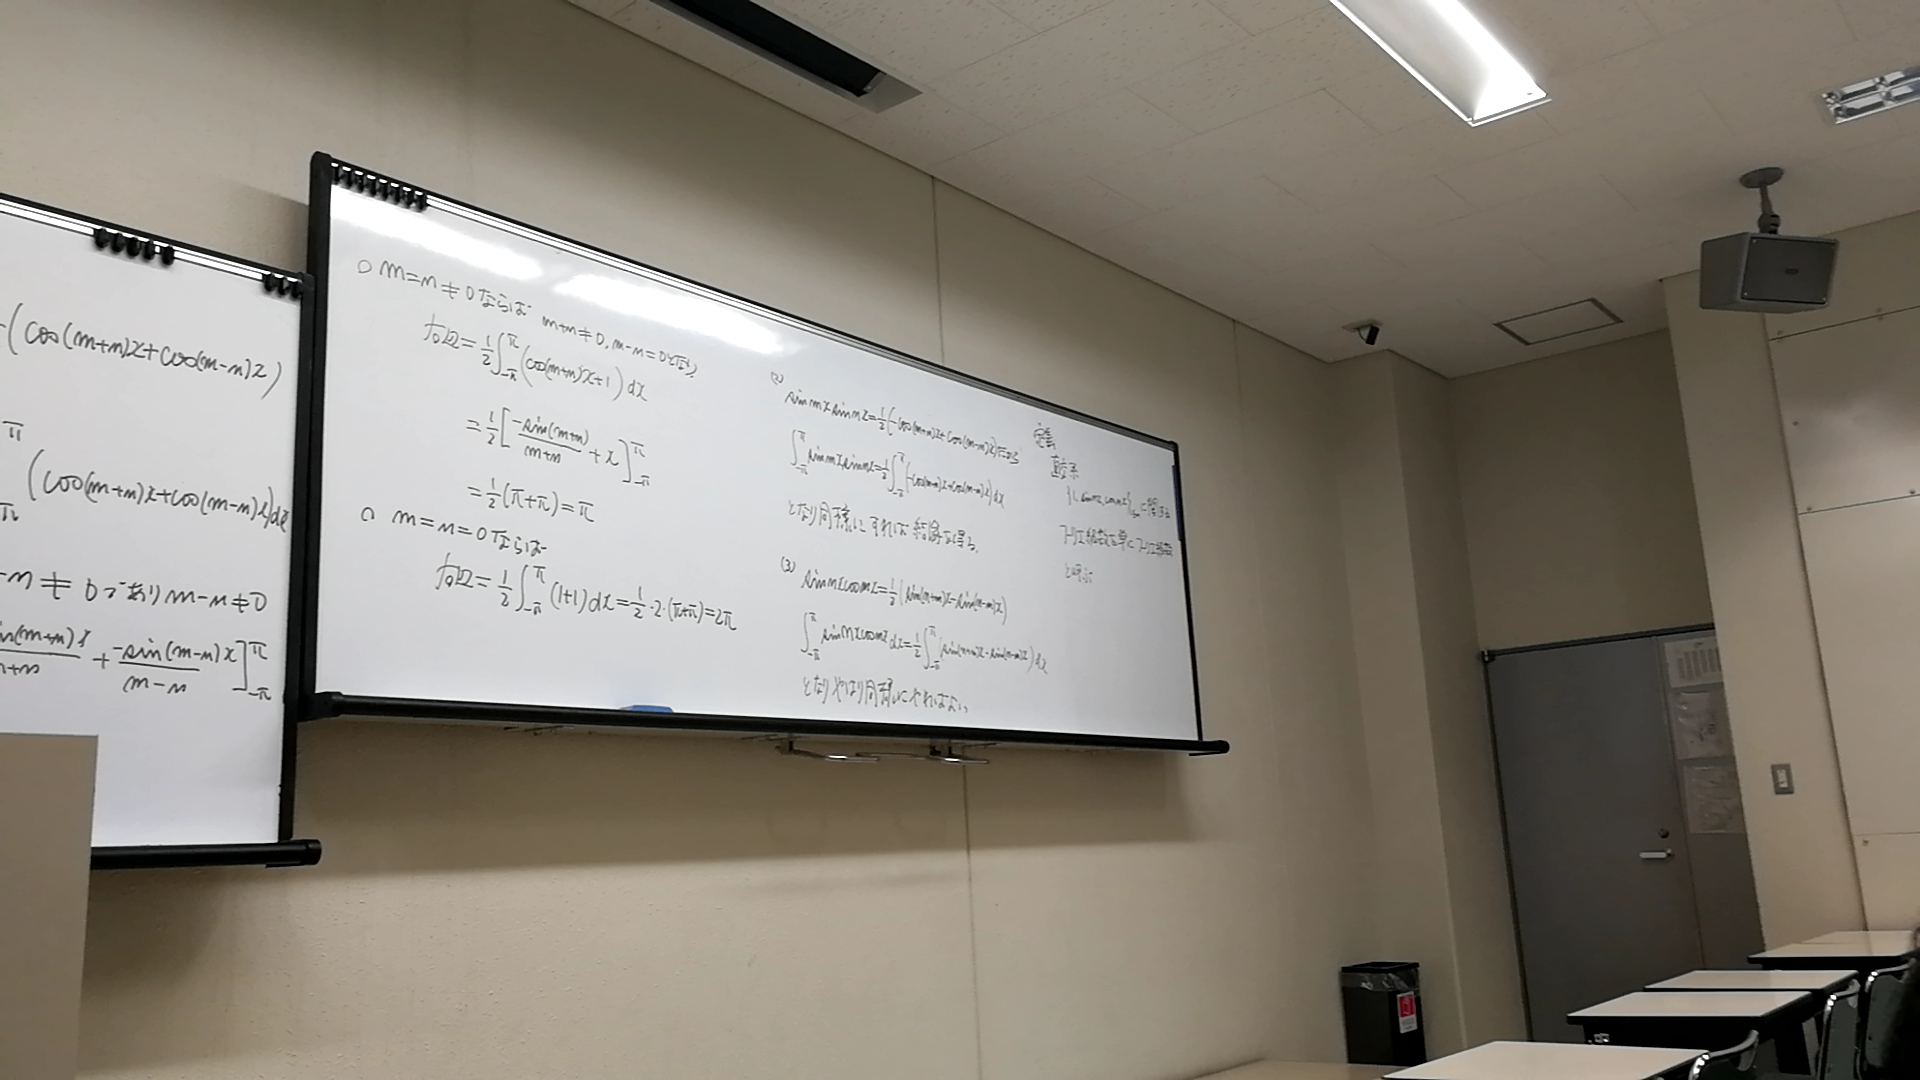 (cos(m+n)x+cos(m-n)x)
π
-π (cos(m+n)x+cos(m-n)x)dx
-n≠0であり m-n≠0
sin(m+n)x/m+n + -sin(m-n)x/m-n]π -π
○ m=n≠0ならば m+n≠0, m-n=0となり、
左辺=1/2∫π -π(cos(m+n)x+1)dx
=1/2[-sin(m+n)/m+n + x]π -π
=1/2(π+π)=π
○ m=n=0ならば
左辺=1/2∫π -π(1+1)dx=1/2・2・(π+π)=2π
(2)
sin mx sin nx=1/2(-cos(m+n)x+cos(m-n)x)だから
∫π -π sin mx sin nx=1/2∫π -π(-cos(m+n)x+cos(m-n)x)dx
となり同様にすれば結論を得る.
(3)
sin mx cos nx=1/2(sin(m+n)x-sin(n-m)x)
∫π -π sin mx cos nx dx=1/2∫π -π(sin(n+m)x-sin(n-m)x)dx
となりやはり同様にやればよい
定義
直交系
{1, sin nx, cos nx} に関する
フーリエ級数を単にフーリエ級数
と呼ぶ